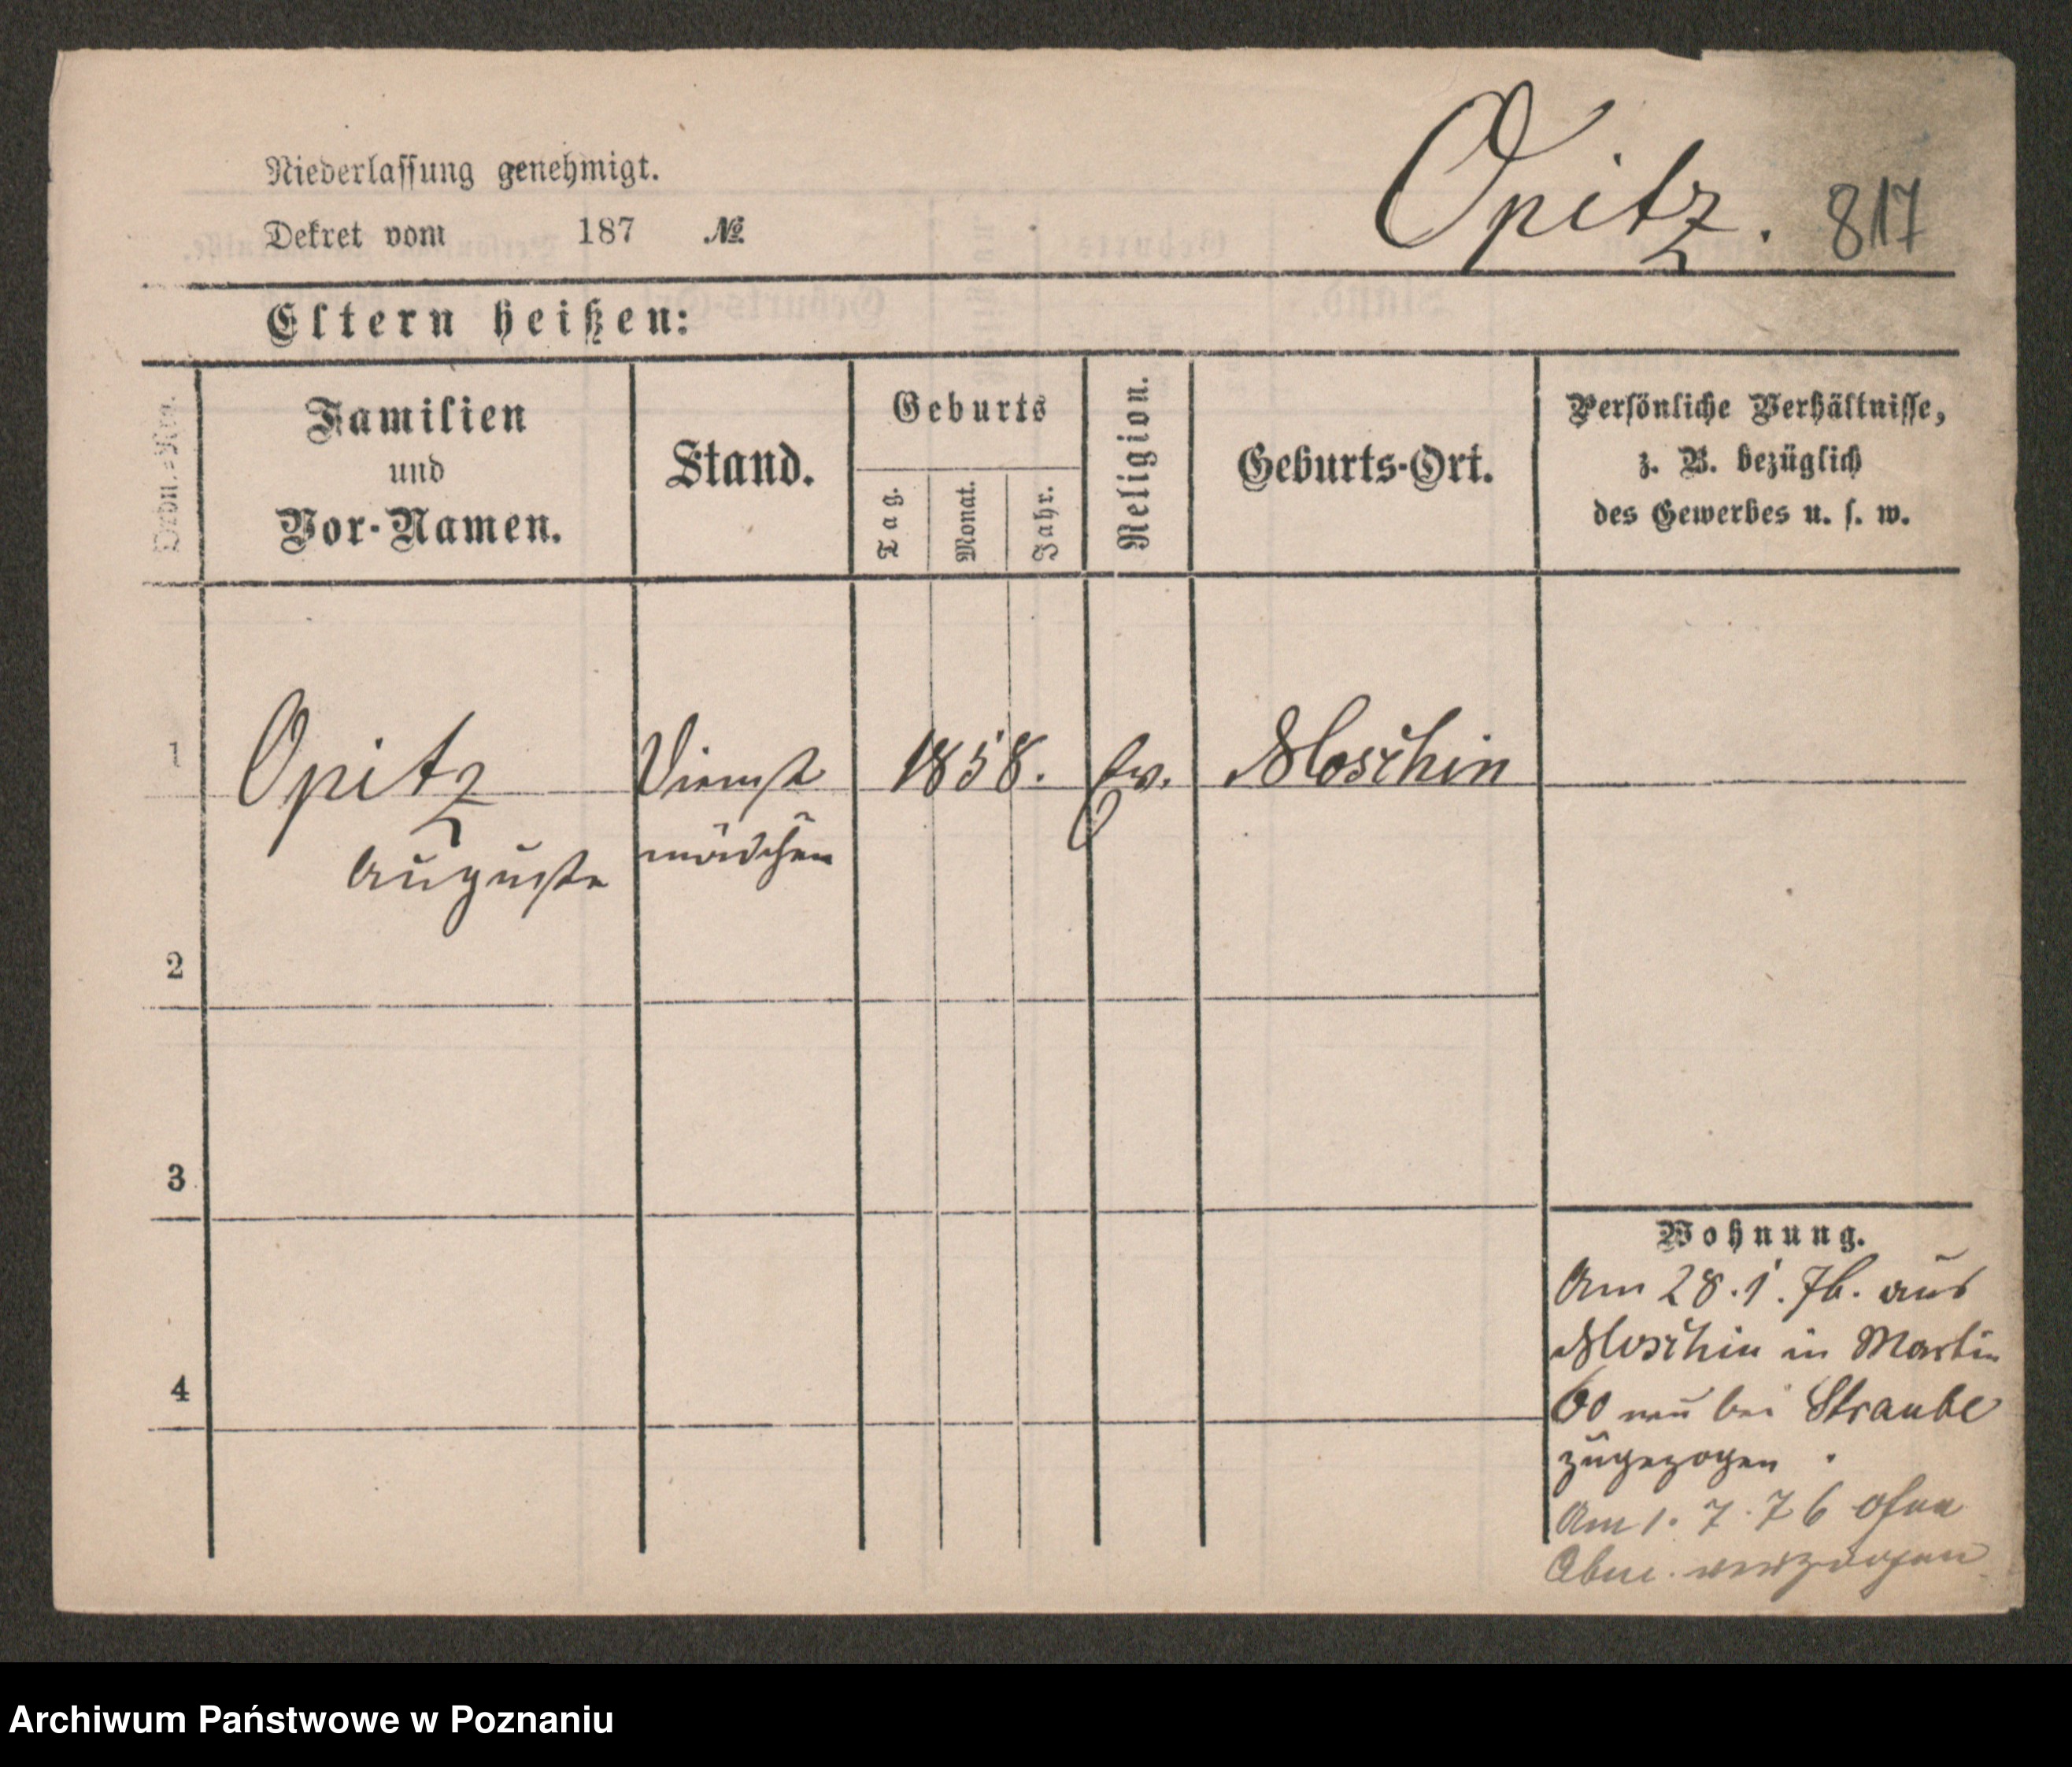 Opitz. 817
Niederlassung genehmigt.
Dekret vom 187 №.
Eltern heißen:
Ordn.-Nro.
Familien
und
Vor-Namen.
Stand.
Geburts
Tag.
Monat.
Jahr.
Religion.
Geburts-Ort.
Persönliche Verhältnisse,
z. B. bezüglich
des Gewerbes u. s. w.
1 Opitz Dienst 1858. ev. Moschin
Auguste mädchen
2
3
4
Wohnung.
Am 28.1.76. aus
Moschin in Martin
60 neu bei Straube
zugezogen.
Am 1. 7. 76 ohne
Abm. verzogen
Archiwum Państwowe w Poznaniu